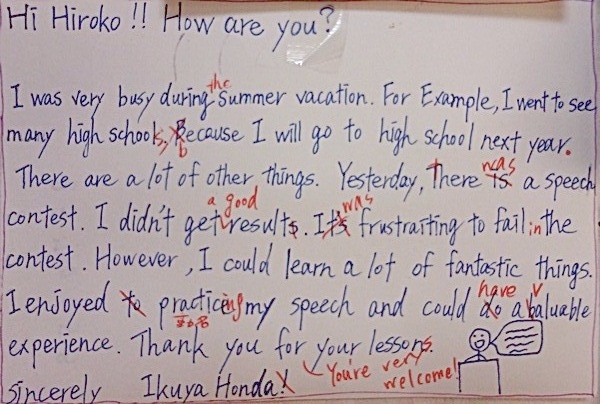 Hi Hiroko !! How are you?
the
I was very busy during summer vacation. For Example, I went to see
many high schools, Because I will go to high school next year.
b
There are a lot of other things. Yesterday, There is a speech
t was
a good was
contest. I didn't get results. It's frustraiting to fail in the
contest. However, I could learn a lot of fantastic things.
have v
I enjoyed to practiceing my speech and could do a baluable
experience. Thank you for your lessons.
You're very welcome!
sincerely Ikuya Honda!